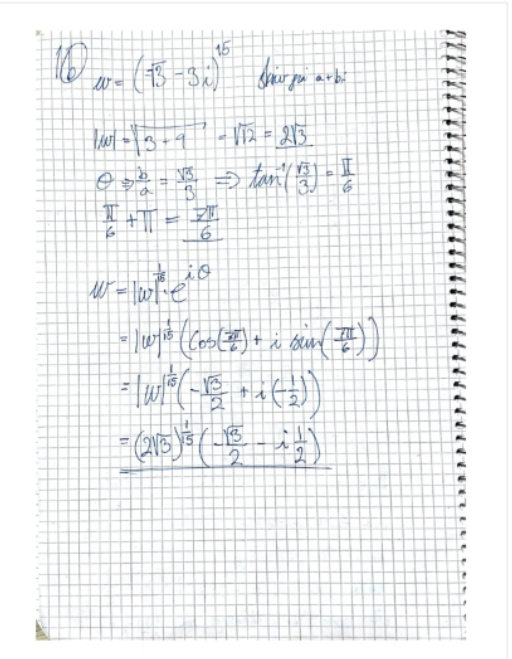 16) w = (-√3 - 3i)^15 Skriv på a+bi
|w| = √(3+9) = √12 = 2√3
θ ⇒ b/a = √3/3 ⇒ tan^-1(√3/3) = π/6
π/6 + π = 7π/6
w = |w|^(1/15) · e^(iθ)
= |w|^(1/15) (cos(7π/6) + i sin(7π/6))
= |w|^(1/15) (-√3/2 + i(-1/2))
= (2√3)^(1/15) (-√3/2 - i 1/2)